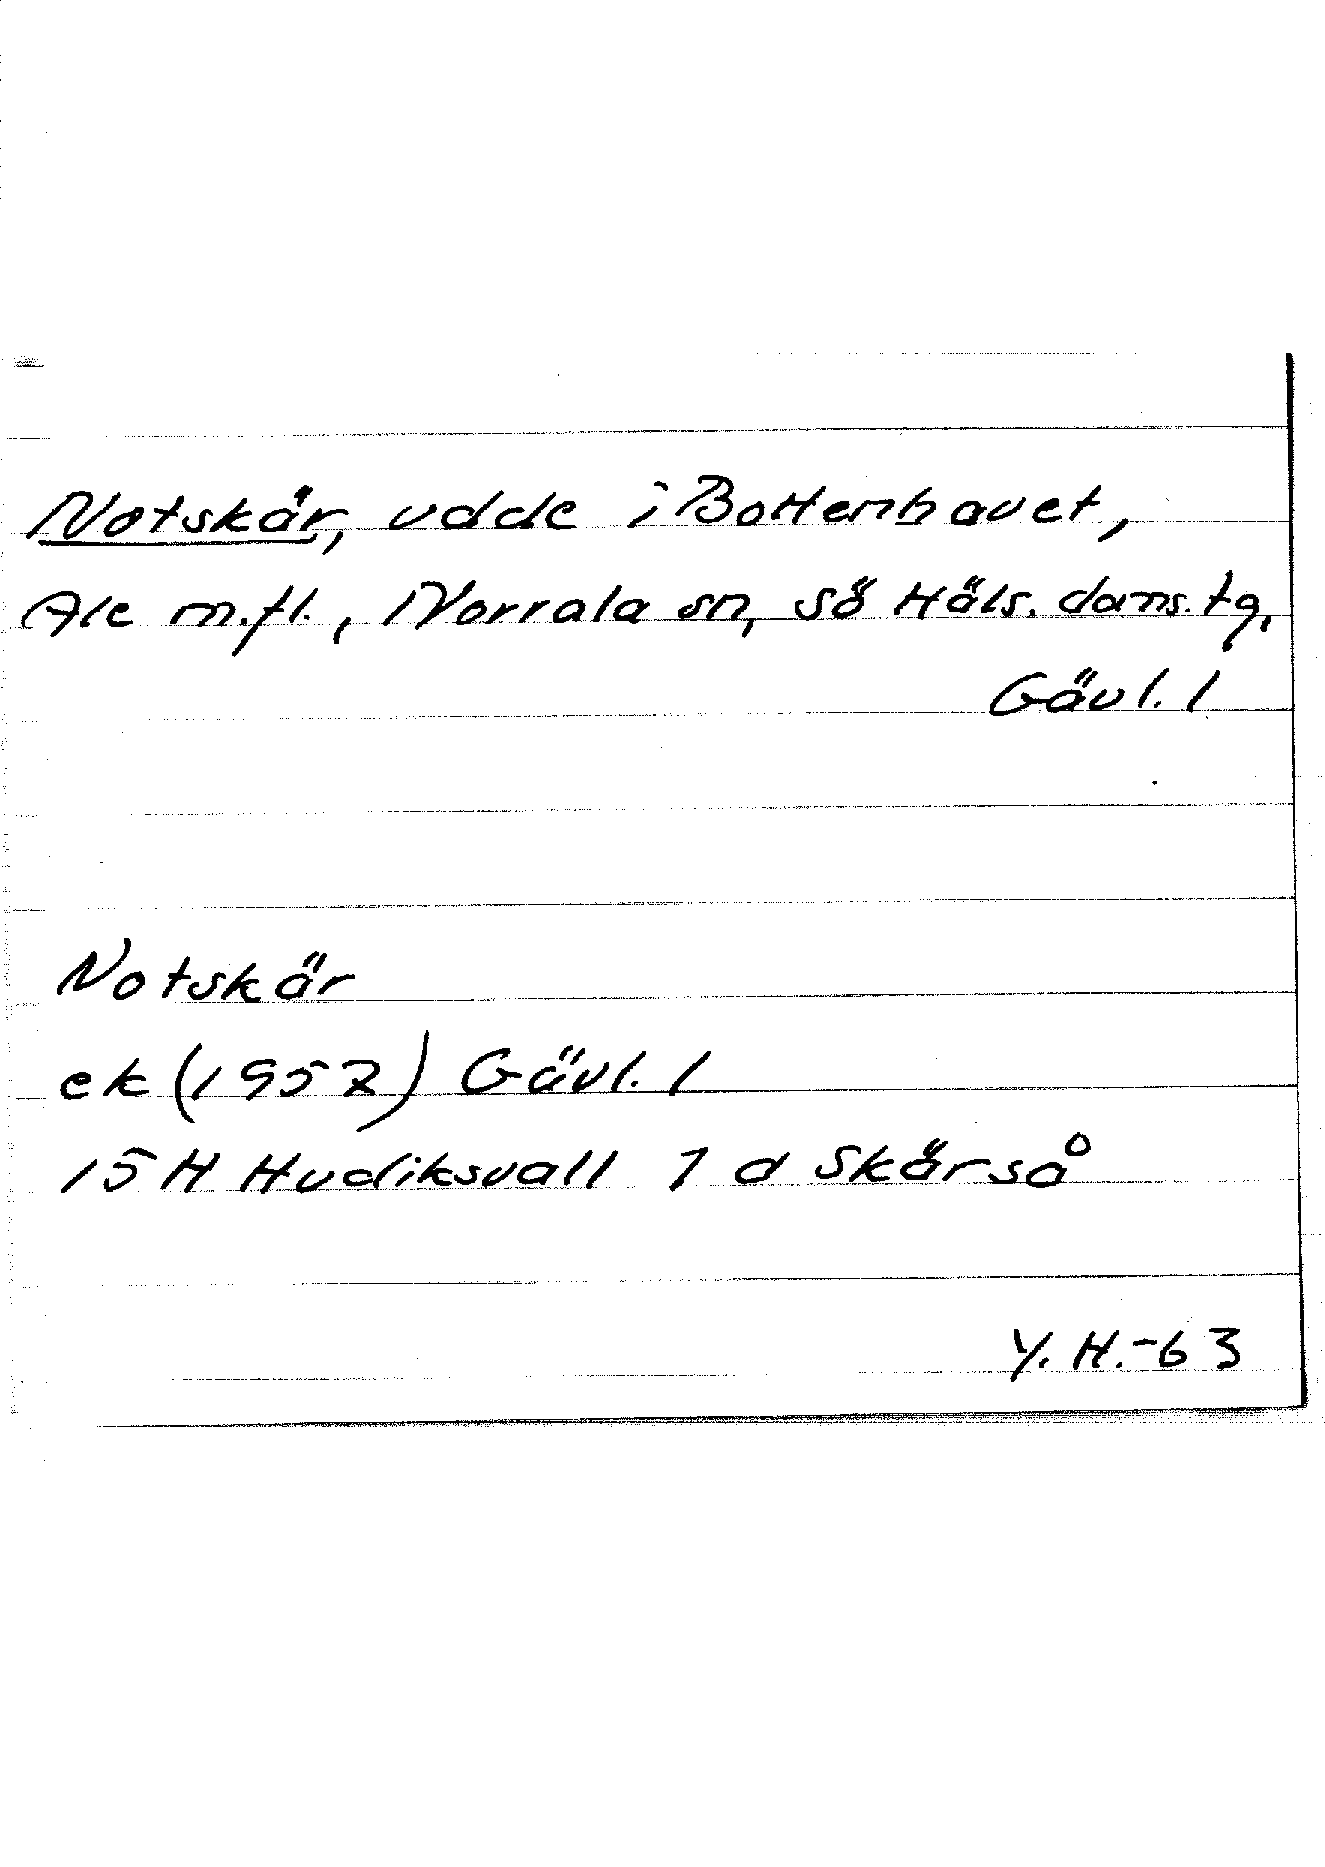 Notskär, udde i Bottenhavet,
Ale m.fl., Norrala sn, Sö Häls. doms. tg,
Gävl. l
Notskär
ek (1957) Gävl. l
15 H Hudiksvall 1 d Skärså
Y. H.-63